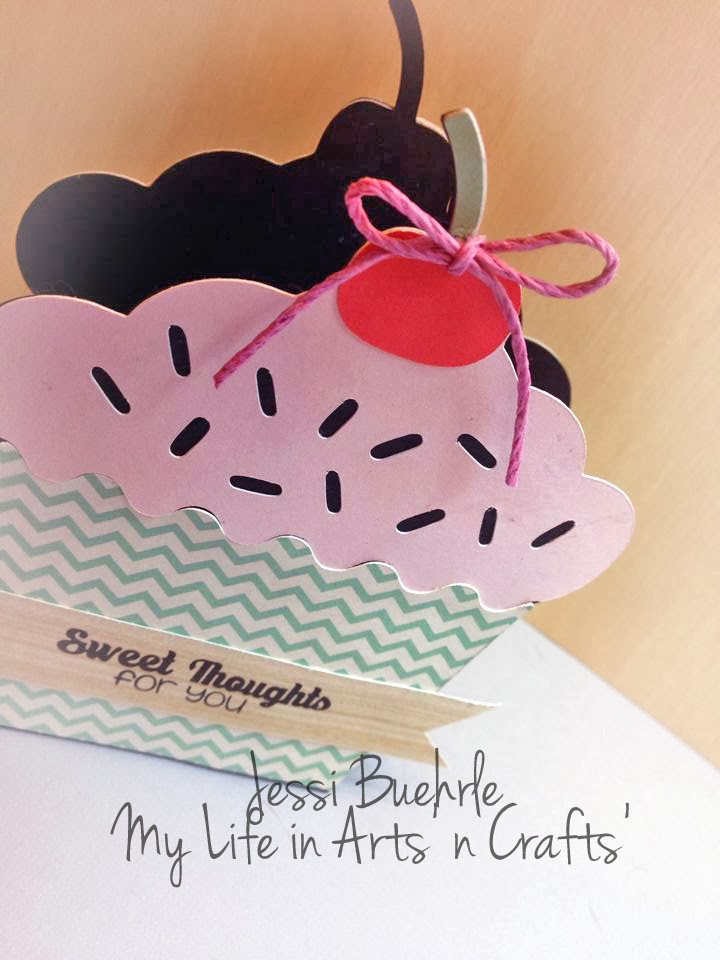 Sweet Thoughts
for you
Jessi Buehrle
'My Life in Arts 'n Crafts'